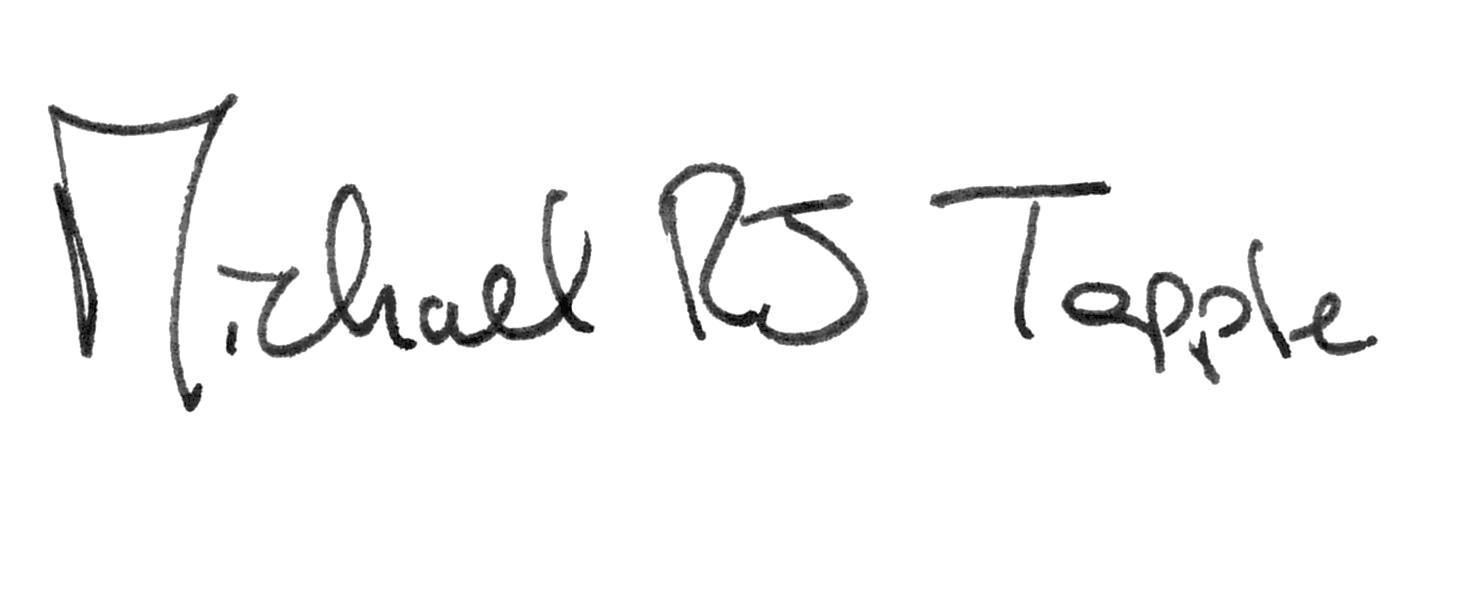 Michael RJ Tapple